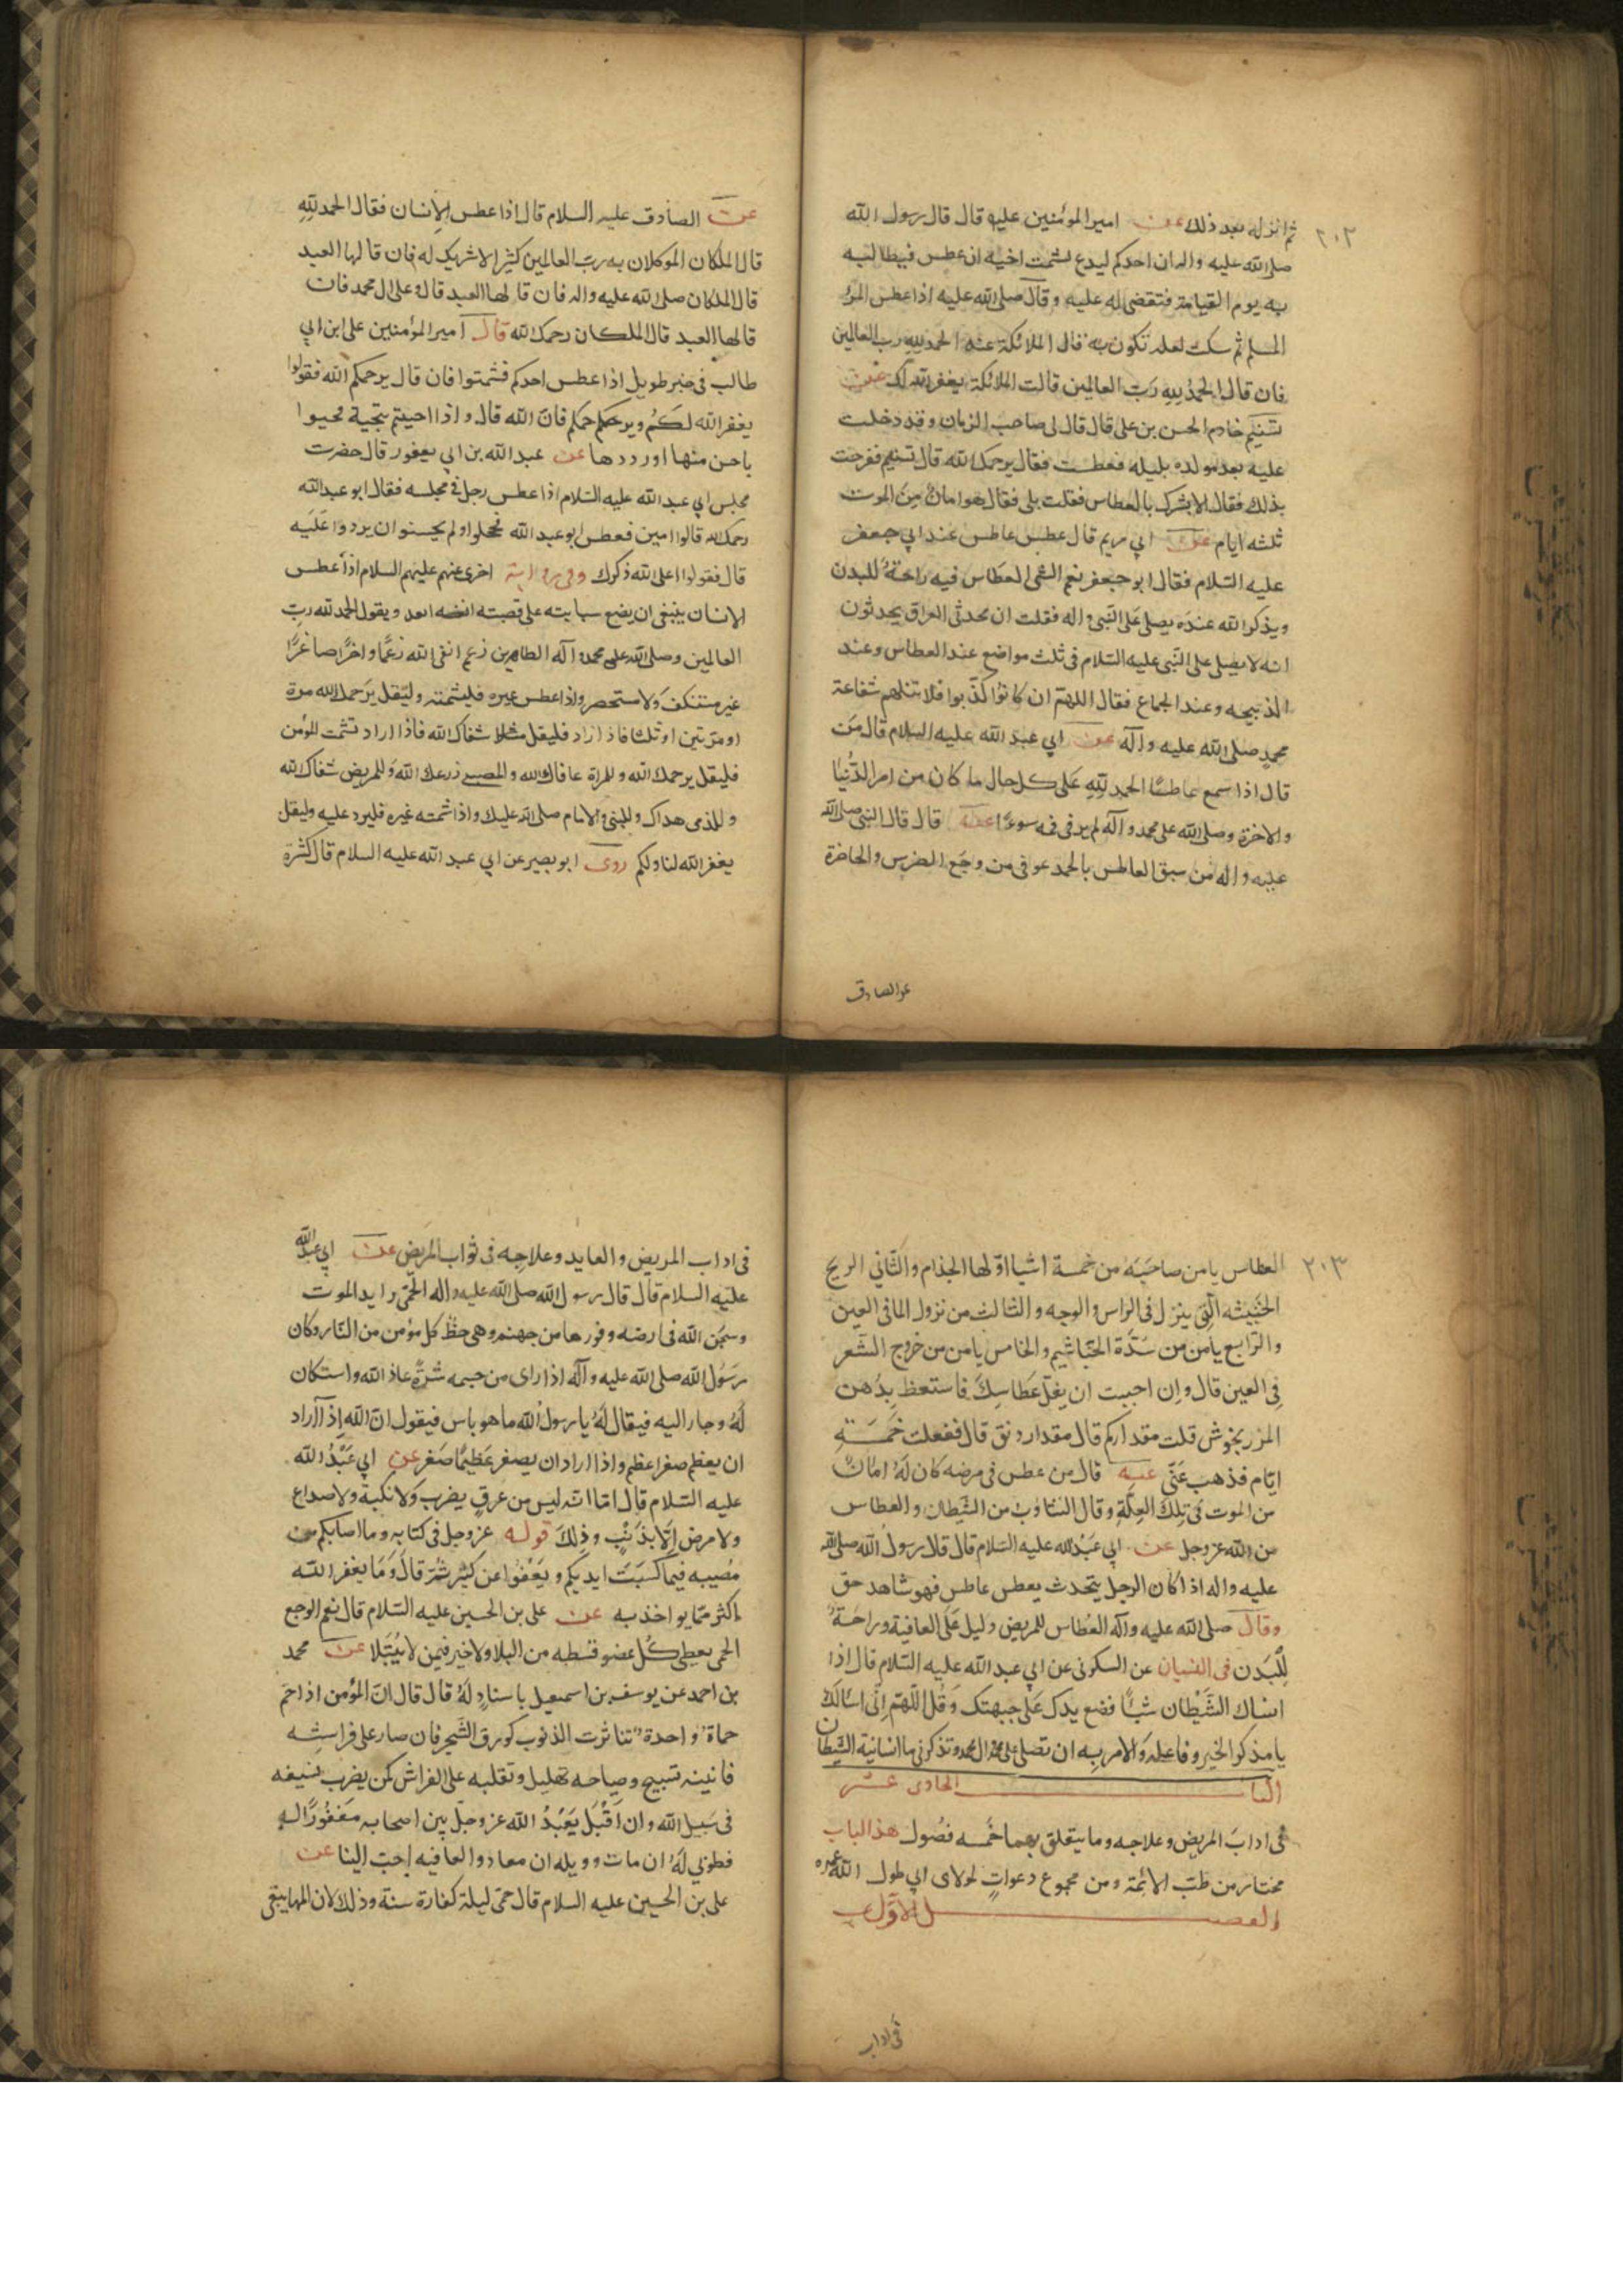 ٢٠٢
ثم انزله بعد ذلك عن امير المؤمنين عليه قال قال رسول الله
صلى الله عليه واله ان احدكم ليدع تشمت اخيه ان عطس فيطالبه
به يوم القيامة فتقضى له عليه وقال صلى الله عليه اذا عطس المرؤ
المسلم ثم سكت لعله تكون به قال الملائكة عنه الحمد لله رب العالمين
فان قال الحمد لله رب العالمين قالت الملائكة يغفر الله لك عن
نسيم خادم الحسن بن على قال قال لى صاحب الزمان وقد دخلت
عليه بعد مولده بليله فعطست فقال يرحمك الله قال نسيم ففرحت
بذلك فقال الا ابشرك بالعطاس فقلت بلى فقال هو امان من الموت
ثلثه ايام عن ابي مريم قال عطس عاطس عند ابي جعفر
عليه السلام فقال ابو جعفر نعم الشى العطاس فيه راحة للبدن
ويذكر الله عنده يصلى على النبى واله فقلت ان محدثى العراق يحدثون
انه لا يصلى على النبى عليه السلام فى ثلث مواضع عند العطاس وعند
الذبيحه وعند الجماع فقال اللهم ان كانوا كذبوا فلا تنلهم شفاعة
محمد صلى الله عليه واله عن ابي عبد الله عليه السلام قال من
قال اذا سمع عاطسا الحمد لله على كل حال ما كان من امر الدنيا
والاخرة وصلى الله على محمد واله لم ير فى فمه سوءا عنه قال قال النبى صلى الله
عليه واله من سبق العاطس بالحمد عوفى من وجع الضرس والخاضرة
عن الصادق
عن الصادق عليه السلام قال اذا عطس الانسان فقال الحمد لله
قال الملكان الموكلان به رب العالمين كثيرا لا شريك له فان قالها العبد
قال الملكان صلى الله عليه واله فان قالها العبد قالا وعلى ال محمد فان
قالها العبد قال الملكان رحمك الله قال امير المؤمنين على ابن ابي
طالب فى خبر طويل اذا عطس احدكم فشمتوا فان قال يرحمكم الله فقولوا
يغفر الله لكم ويرحمكم فان الله قال واذا احييتم بتحية فحيوا
باحسن منها او ردوها عن عبد الله بن ابي يعفور قال حضرت
مجلس ابي عبد الله عليه السلام اذا عطس رجل فى مجلسه فقال ابو عبد الله
رحمك الله قالوا امين فعطس ابو عبد الله فخجلوا ولم يحسنوا ان يردوا عليه
قال فقولوا اعلى الله ذكرك وفى رواية اخرى عنهم عليهم السلام اذا عطس
الانسان ينبغى ان يضع سبابته على قصبته انفه ويقول الحمد لله رب
العالمين وصلى الله على محمد واله الطاهرين رغم انفى لله رغما داخرا صاغرا
غير مستنكف ولا مستحصر واذا عطس غيره فليشمته وليقل يرحمك الله مرة
او مرتين او ثلثا فاذا زاد فليقل مثلا شفاك الله فاذا اراد تشمت المؤمن
فليقل يرحمك الله وللمراة عافاك الله وللصبى زرعك الله وللمريض شفاك الله
وللذمى هداك وللنبى والامام صلى الله عليك واذا شمته غيره فليرد عليه وليقل
يغفر الله لنا ولكم روى ابو بصير عن ابي عبد الله عليه السلام قال كثرة
٢٠٣
العطاس يامن صاحبه من خمسة اشيا اولها الجذام والثاني الريح
الخبيثه التى ينزل فى الراس والوجه والثالث من نزول الما فى العين
والرابع يأمن من سدة الخياشيم والخامس يامن من خروج الشعر
فى العين قال وان احببت ان يقل عطاسك فاستعظ بدهن
المزربخوش قلت مقدار كم قال مقدار دنق قال ففعلت خمسة
ايام فذهب عنى عنه قال من عطس فى مرضه كان له امانا
من الموت فى تلك العلة وقال التثاوب من الشيطان والعطاس
من الله عز وجل عن ابي عبد الله عليه السلام قال قال رسول الله صلى الله
عليه واله اذا كان الرجل يتحدث يعطس عاطس فهو شاهد حق
وقال صلى الله عليه واله العطاس للمريض دليل على العافية وراحة
للبدن فى النسيان عن السكونى عن ابي عبد الله عليه السلام قال اذا
انساك الشيطان شيئا فضع يدك على جبهتك وقل اللهم انى اسالك
يا مذكر الخير وفاعله والامر به ان تصلى على محمد وال محمد وتذكرنى ما انسانيه الشيطان
الباب الحادى عشر
فى اداب المريض وعلاجه وما يتعلق بهما خمسه فصول هذا الباب
مختار من طب الائمة ومن مجموع دعوات لمولاى ابي طول الله عمره
الفصل الاول
فى اداب
فى اداب المريض والعايد وعلاجه فى ثواب المريض عن ابي عبد الله
عليه السلام قال قال رسول الله صلى الله عليه واله الحمى رايد الموت
وسجن الله فى ارضه وفورها من جهنم وهى حظ كل مؤمن من النار وكان
رسول الله صلى الله عليه واله اذا راى من جسمه بثرة عاذ الله واستكان
له وجار اليه فيقال له يا رسول الله ما هو باس فيقول ان الله اذا اراد
ان يعظم صغيرا عظم واذا اراد ان يصغر عظيما صغر عن ابي عبد الله
عليه السلام قال اما انه ليس من عرق يضرب ولا نكبة ولا صداع
ولا مرض الا بذنب وذلك قوله عز وجل فى كتابه وما اصابكم من
مصيبه فبما كسبت ايديكم ويعفوا عن كثير ثم قال وما يغفر الله
اكثر مما يواخذ به عن على بن الحسين عليه السلام قال نعم الوجع
الحمى يعطى كل عضو قسطه من البلا ولا خير فيمن لا يبتلا عن محمد
بن احمد عن يوسف بن اسمعيل باسناد له قال قال ان المؤمن اذا حم
حماة واحدة تناثرت الذنوب كورق الشجر فان صار على فراشه
فانينه تسبيح وصياحه تهليل وتقلبه على الفراش كمن يضرب بسيفه
فى سبيل الله وان اقبل يعبد الله عز وجل بين اصحابه مغفورا له
فطوبي له ان مات وويله ان معاد والعافيه احب الينا عن
على بن الحسين عليه السلام قال حمى ليلة كفارة سنة وذلك لان المها يبقى